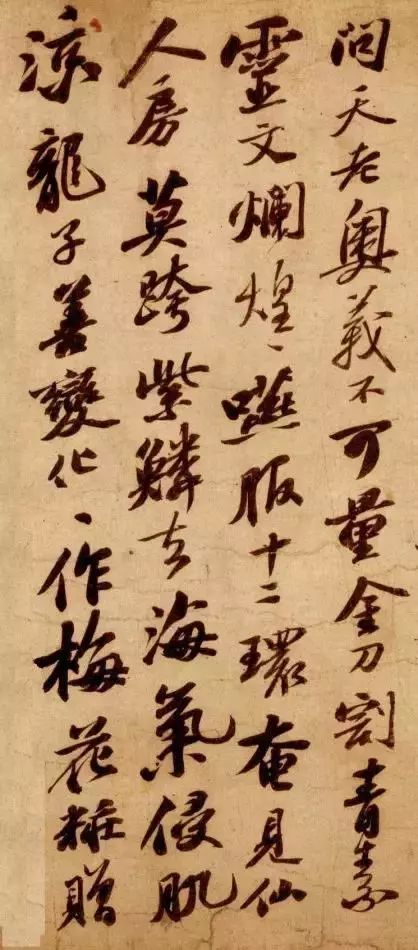 問天老奧義不可量金刀割青素
靈文爛煌〻嚥服十二環奄見仙
人房莫跨紫鱗去海氣侵肌
涼龍子善變化〻作梅花粧贈